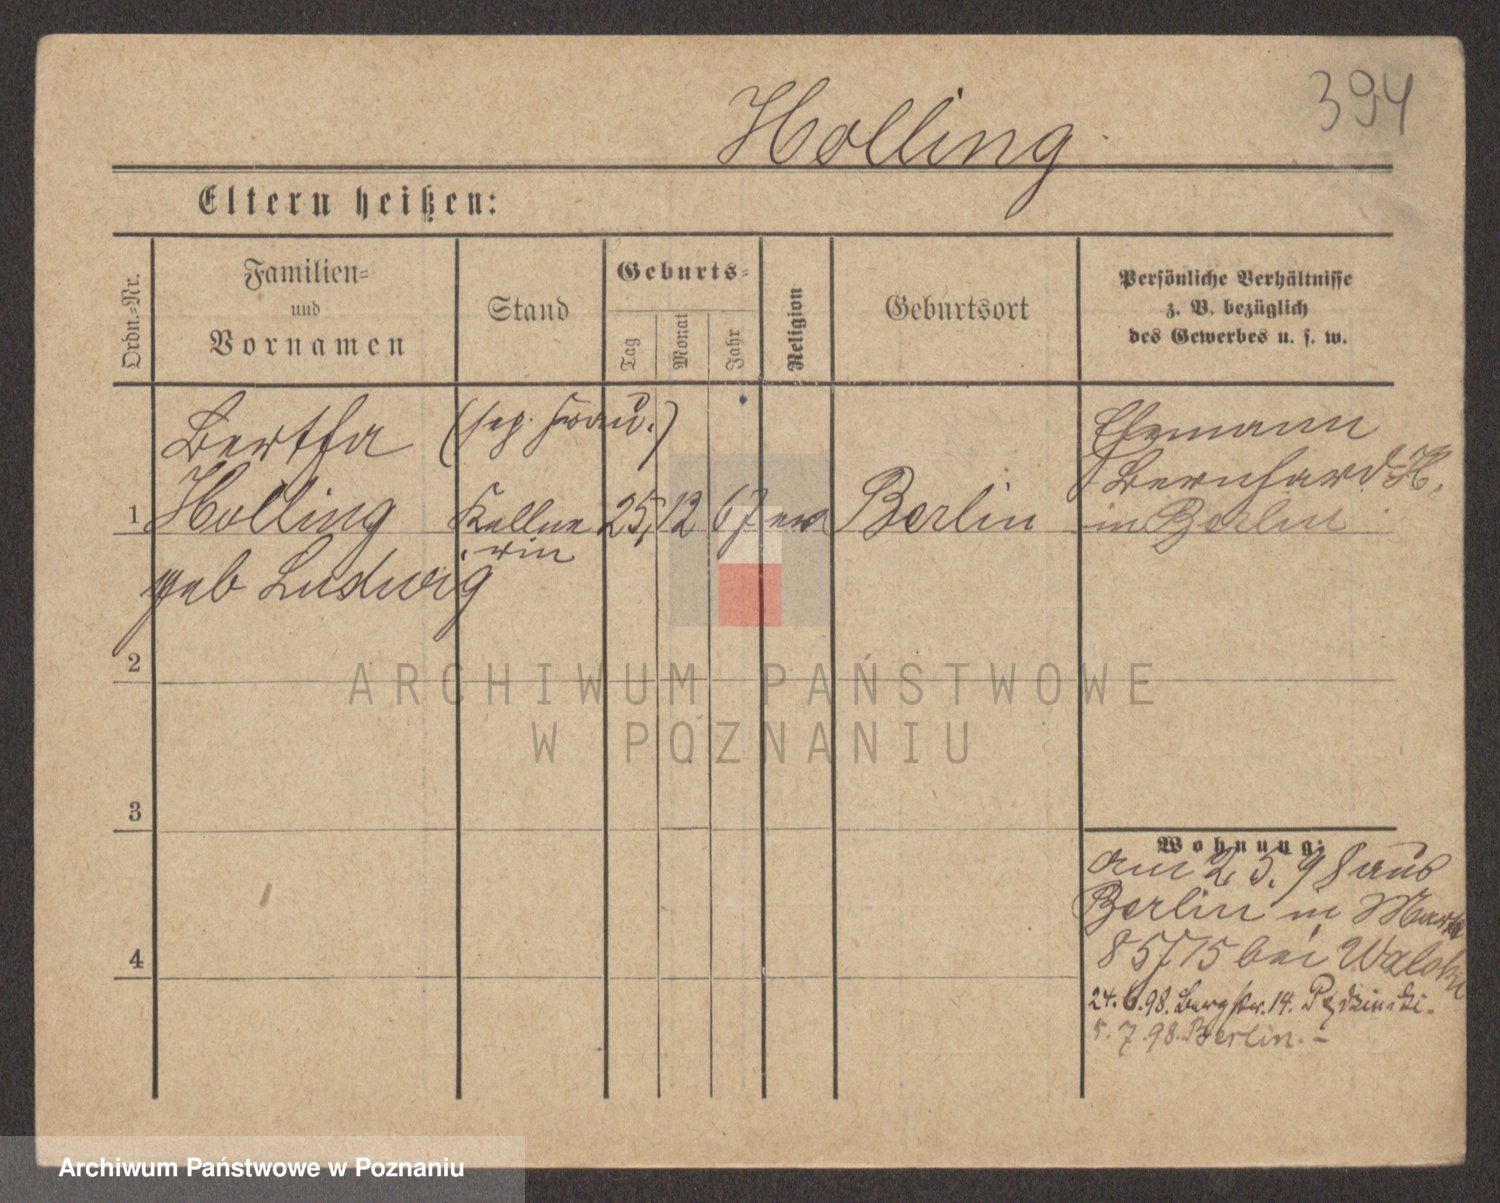 394
Holling
Eltern heißen:
Ordn.-Nr.
Familien-
und
Vornamen
Stand
Geburts-
Tag
Monat
Jahr
Religion
Geburtsort
Persönliche Verhältnisse
z. B. bezüglich
des Gewerbes u. s. w.
Bertha (sep. Frau.)
1 Holling Kellne 25, 12 67 ev Berlin
rin
geb Ludwig
Ehemann
Bernhard H.
in Berlin
2
3
4
Wohnung:
am 2. 5. 98 aus
Berlin in
85/15 bei
24. 6. 98. Bergstr. 14.
5. 7. 98. Berlin. –
ARCHIWUM PAŃSTWOWE
W POZNANIU
Archiwum Państwowe w Poznaniu